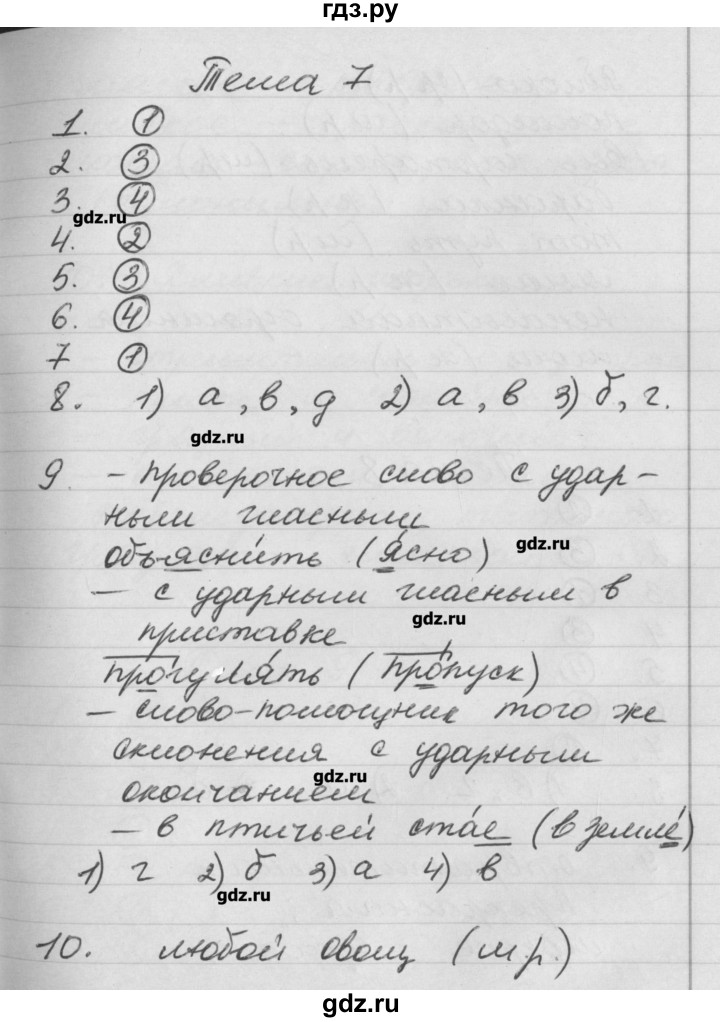 гдз.ру
Тема 7
1. ①
2. ③
3. ④
gdz.ru
4. ②
5. ③
6. ④
7 ①
8. 1) а, в, д 2) а, в 3) б, г.
gdz.ru
9. – проверочное слово с удар-
ными гласными
объяснить (ясно)
gdz.ru
– с ударными гласным в
gdz.ru
приставке
прогулять (пропуск)
– слово-помощник того же
склонения с ударным
gdz.ru
окончанием
– в птичьей стае (в земле)
1) г 2) б 3) а 4) в
gdz.ru
10. любой овощ (м.р.)
gdz.ru